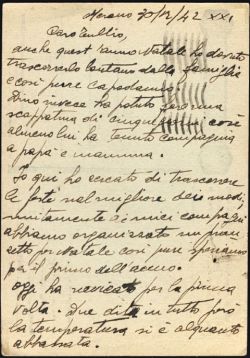 Merano 30/12/42 XXI
Caro Tullio,
anche quest'anno Natale ho dovuto
trascorrerlo lontano dalla famiglia
e così pure Capodanno.
Dino invece ha potuto fare una
scappatina di cinque giorni così
almeno lui ha tenuto compagnia
a papà e mamma.
Io qui ho cercato di trascorrere
le feste nel migliore dei modi
unitamente ai miei compagni
abbiamo organizzato un pran
setto per Natale così pure speriamo
per il primo dell'anno.
Oggi ha nevicato per la prima
volta. Due dita in tutto però
la temperatura si è alquanto
abbassata.